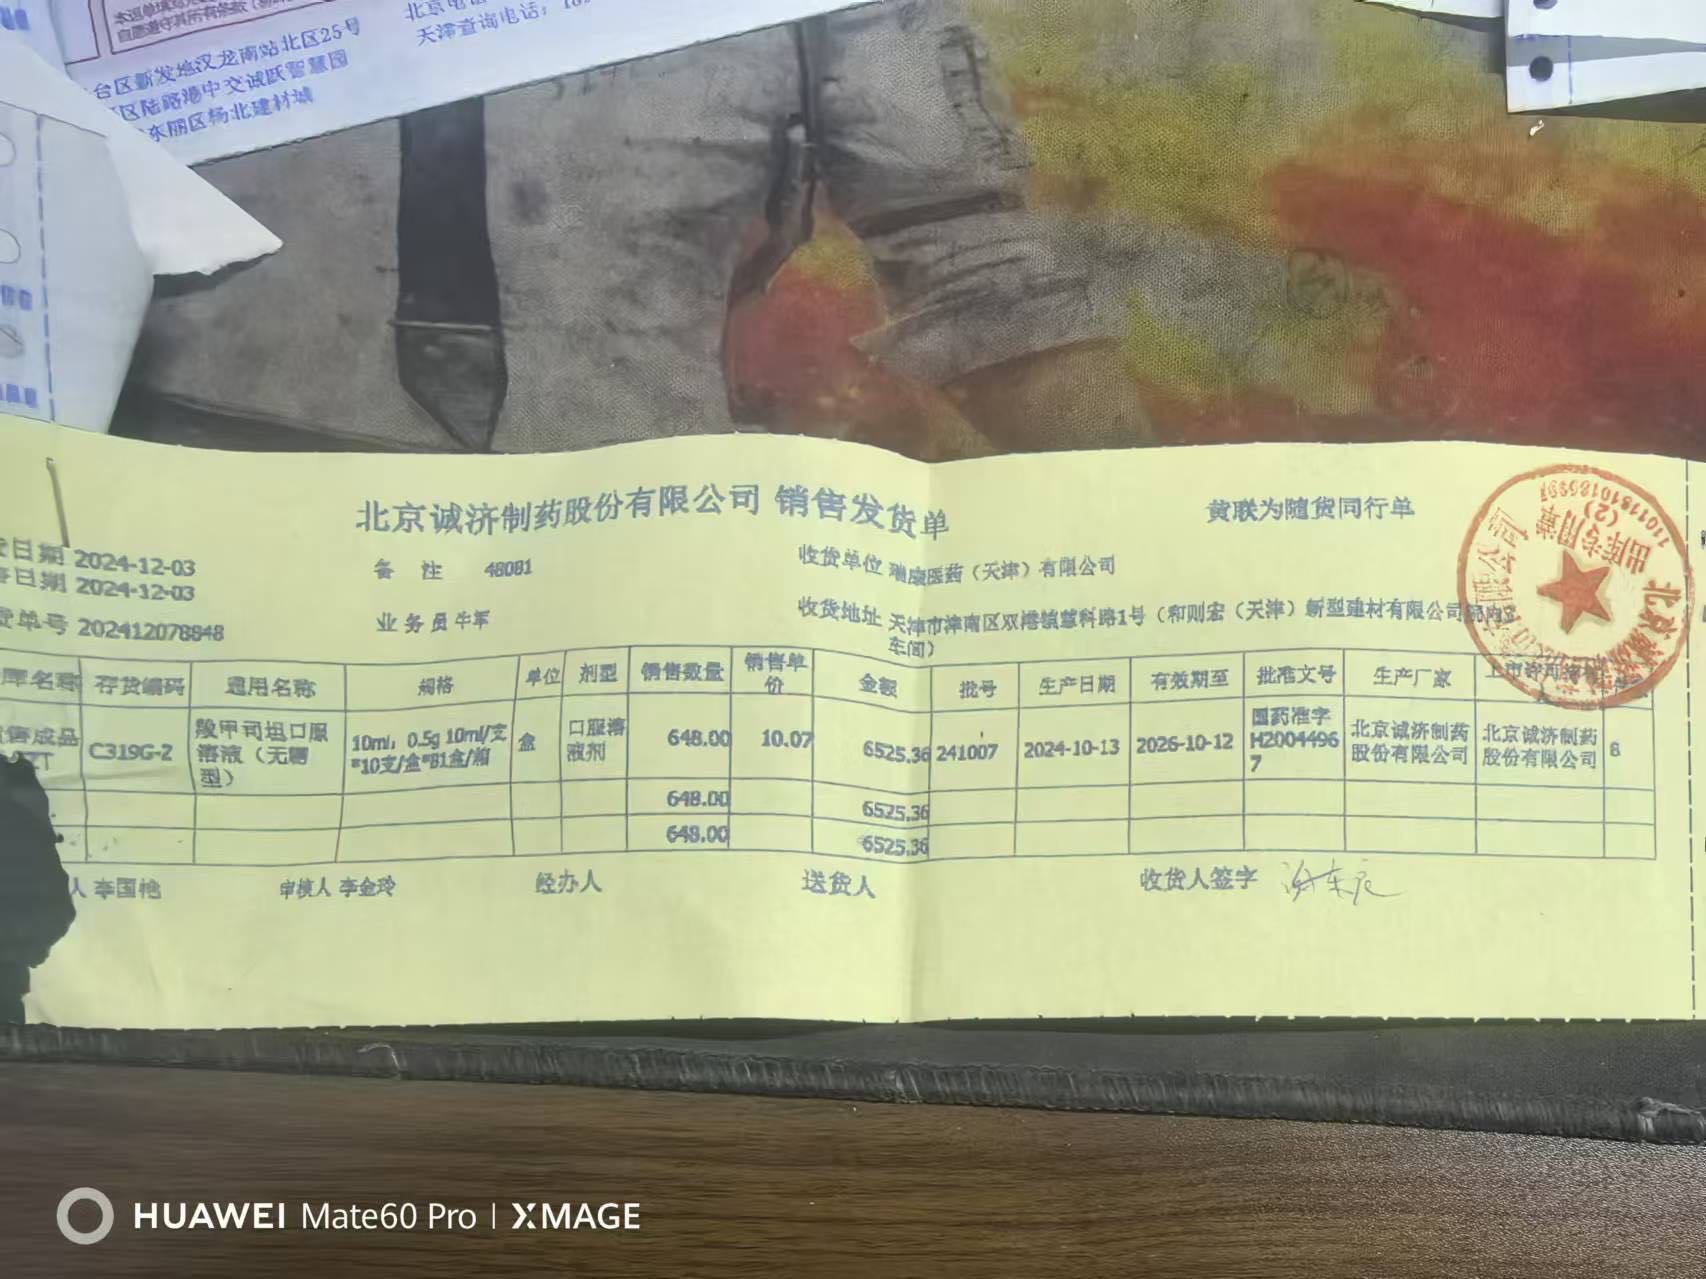 台区新发地汉龙南站北区25号
区陆路港中交诚跃智慧园
东丽区杨北建材城
天津查询电话:
北京诚济制药股份有限公司 销售发货单
黄联为随货同行单
日期 2024-12-03
备 注 48081
收货单位 瑞康医药（天津）有限公司
日期 2024-12-03
货单号 202412078848
业务员 牛军
收货地址 天津市津南区双港镇慧科路1号（和则宏（天津）新型建材有限公司院内
车间）
库名称 存货编码 通用名称 规格 单位 剂型 销售数量 销售单价 金额 批号 生产日期 有效期至 批准文号 生产厂家 上市许可持有
成品 C319G-2 羧甲司坦口服溶液（无糖型） 10ml：0.5g 10ml/支*10支/盒*81盒/箱 盒 口服溶液剂 648.00 10.07 6525.36 241007 2024-10-13 2026-10-12 国药准字H20044967 北京诚济制药股份有限公司 北京诚济制药股份有限公司 8
648.00 6525.36
648.00 6525.36
人 李国艳 审核人 李金玲 经办人 送货人 收货人签字
出库专用章
(2)
HUAWEI Mate60 Pro | XMAGE